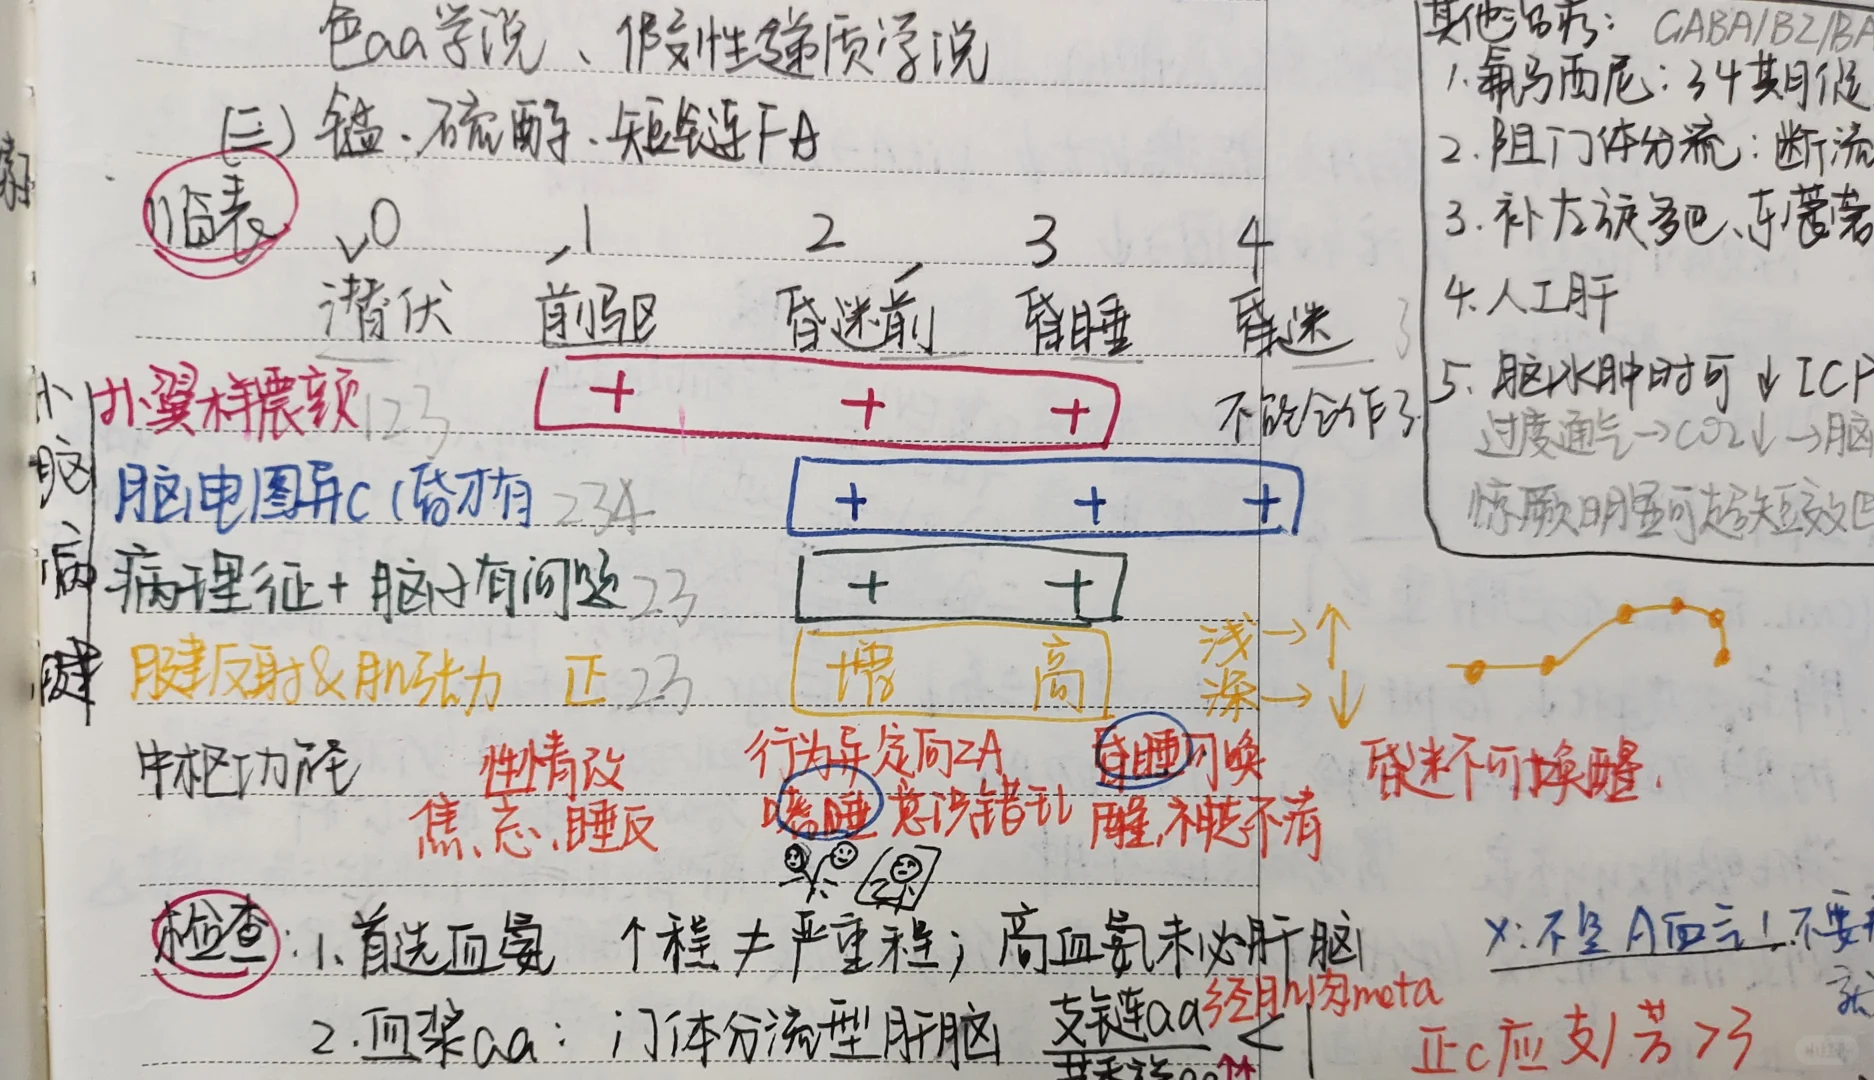 色aa学说、假性递质学说
(三) 锰、硫醇、短链FA
临表 0 1 2 3 4
潜伏 前驱 昏迷前 昏睡 昏迷 3
扑翼样震颤 123 + + + 不能合作3
脑电图异c(昏才有 234 + + +
病理征+脑以有问题 23 + +
腱反射&肌张力 正 23 增 高 浅→↑
深→↓
中枢功能 性情改 行为异定向ZA 昏睡可唤 昏迷不可换醒.
焦、忘、睡反 嗜睡 意识错乱 醒,神志不清
扑
脑
病
腱
检查:1.首选血氨 个程≠严重程;高血氨未必肝脑
2.血浆aa:门体分流型肝脑 支链aa 经肌肉meta <1
正c应支/芳>3
X:不是A血氨!不要
其他治疗: GABA/BZ/BA
1.氟马西尼:34期促
2.阻门体分流:断流
3.补左旋多巴、东莨菪
4.人工肝
5.脑水肿时可↓ICP
过度通气→CO2↓→脑
惊厥明显可超短效巴